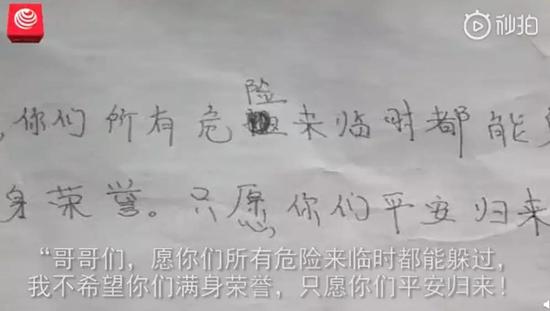 秒拍
险
,你们所有危来临时都能
身荣誉。只愿你们平安归来
“哥哥们，愿你们所有危险来临时都能躲过，
我不希望你们满身荣誉，只愿你们平安归来！